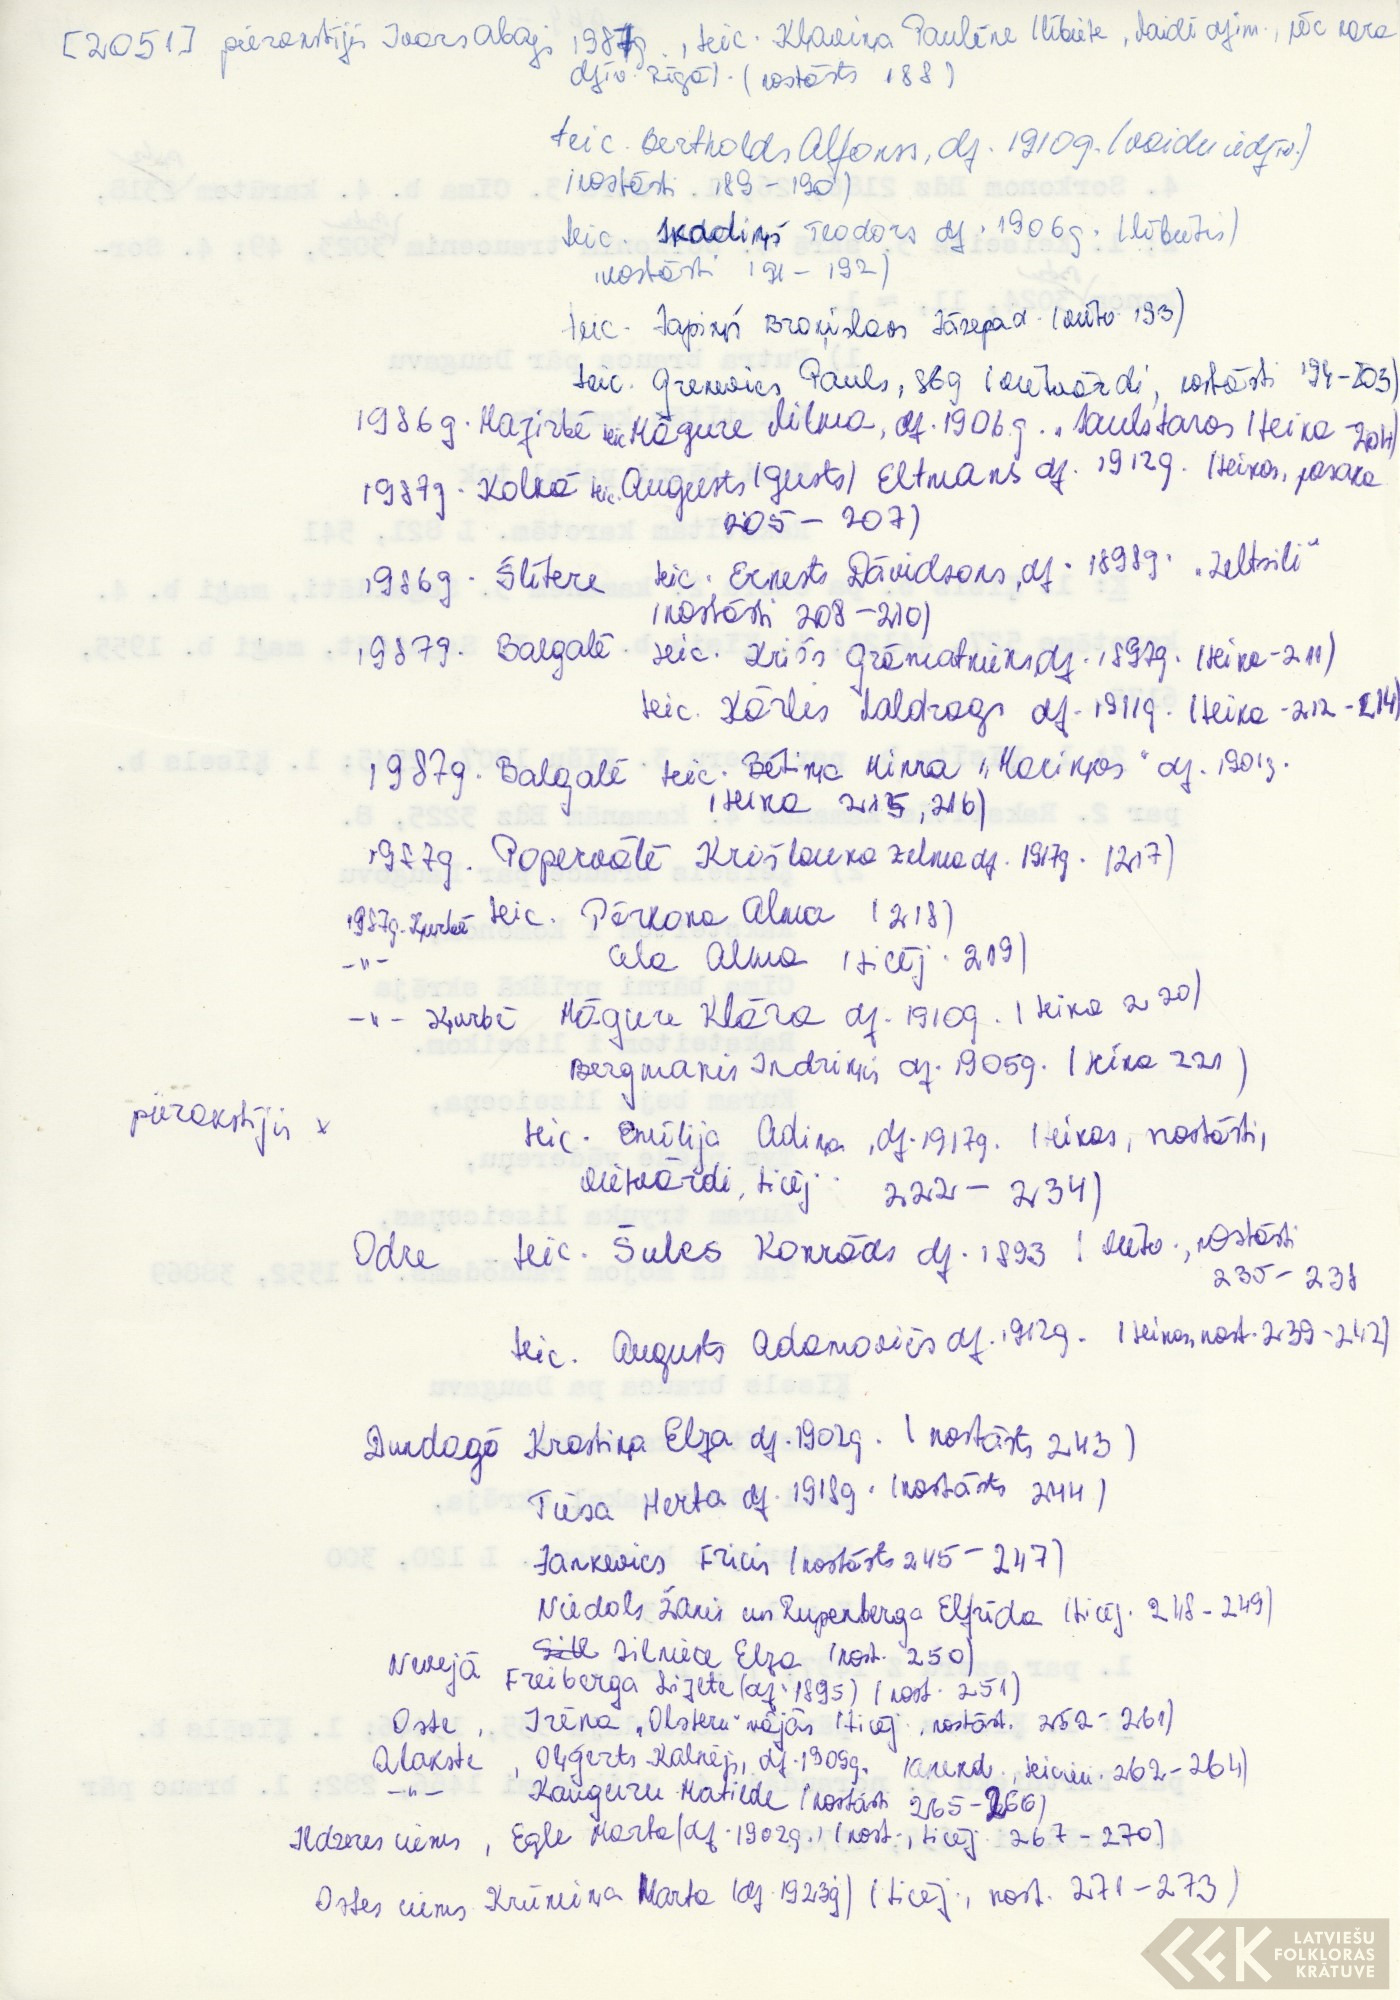 [2051] pierakstījis Ivars Abajs 1987g., teic. Kļaviņa Paulīne lībiete, Vaidē dzim., pēc kara
dzīv. Rīgā). (nostāsts 188)
teic. Bertholds Alfonss, dz. 1910g. (Vaidu iedzīv.)
(nostāsti 189-190)
teic. Skadiņš Teodors dz. 1906g. (lībietis)
(nostāsti 191-192)
teic. Japiņš Broņislavs Jāzepa d. (vietv. 193)
teic. Grenevics Pauls, 86g (vietvārdi, nostāsti 194-203)
1986g. Mazirbē teic. Māgure Vilma, dz. 1906.g. „Saulstaros (teika -204)
1987g. Kolkā teic. Augusts (Gusts) Eltmanis dz. 1912g. (teikas, pasaka
205-207)
1986g. Šlītere teic. Ernests Dāvidsons, dz. 1898g. „Zeltsili"
(nostāsti 208-210)
1987g. Balgalē teic. Krišs Grāmatnieks, dz. 1897g. (teika-211)
teic. Kārlis Valdrags dz. 1911g. (teika -212-214)
1987g. Balgalē teic. Bētiņa Minna „Maciņos" dz. 1901g.
(teika 215, 216)
1987g. Popervālē Krišlauka Zelma dz. 1917g. (217)
1987g. Ķurbē teic. Pērkona Alma (218)
-"- Cela Alma (ticēj. 219)
-"- Ķurbē Māgure Klāra dz. 1910g. (teika 220)
Bergmanis Indriķis dz. 1905g. (teika 221)
pierakstījis x teic. Emīlija Adiņa, dz. 1917g. (teikas, nostāsti,
vietvārdi, ticēj. 222-234)
Odre teic. Šulcs Konrāds dz. 1893 (vietv., nostāsti
235-238
teic. Augusts Adamovičs dz. 1912g. (teikas, nost. 239-242)
Dundagā Krastiņa Elza dz. 1902g. (nostāsts 243)
Tiesa Herta dz. 1918g. (nostāsts 244)
Jankevics Fricis (nostāsts 245-247)
Niedols Žanis un Rupenberga Elfrīda (ticēj. 248-249)
Nevejā Zilniece Elza (nost. 250)
Freiberga Lizete (dz. 1895) (nost. 251)
Oste, Irēna „Olsteru" mājās (ticēj., nostāst. 252-261)
Alakste, Oļģerts Kalnējs, dz. 1909g. (anekd., teicieni 262-264)
-"- Kanguru Matilde (nostāsti 265-266)
Ildzeres ciems, Egle Marta (dz. 1902g., (nost., ticēj. 267-270)
Ostes ciems Krūmiņa Marta (dz. 1923g) (ticēj., nost. 271-273)
LATVIEŠU
FOLKLORAS
KRĀTUVE